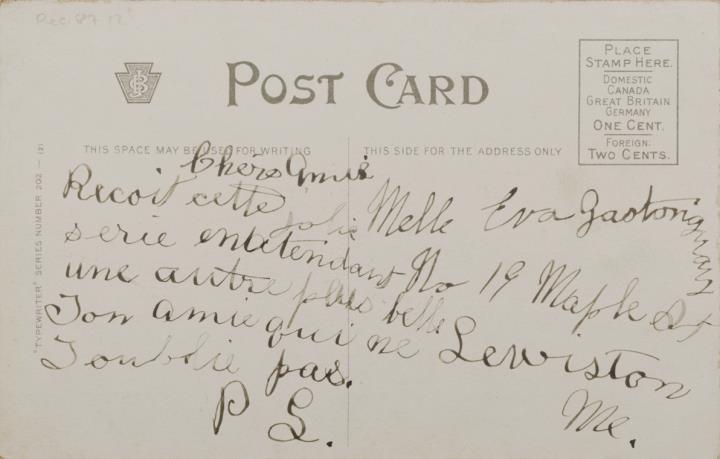 Dec 87 12
POST CARD
PLACE
STAMP HERE.
DOMESTIC
CANADA
GREAT BRITAIN
GERMANY
ONE CENT.
FOREIGN:
TWO CENTS.
THIS SPACE MAY BE USED FOR WRITING
THIS SIDE FOR THE ADDRESS ONLY
"TYPEWRITER" SERIES NUMBER 202 — (2)
Chers Amie
Recoit cette jolie
serie entetendant
une autre plus belle
Ton amie qui ne
Toublie pas.
P L.
Melle Eva Gastonguay
No 19 Maple St
Lewiston
Me.